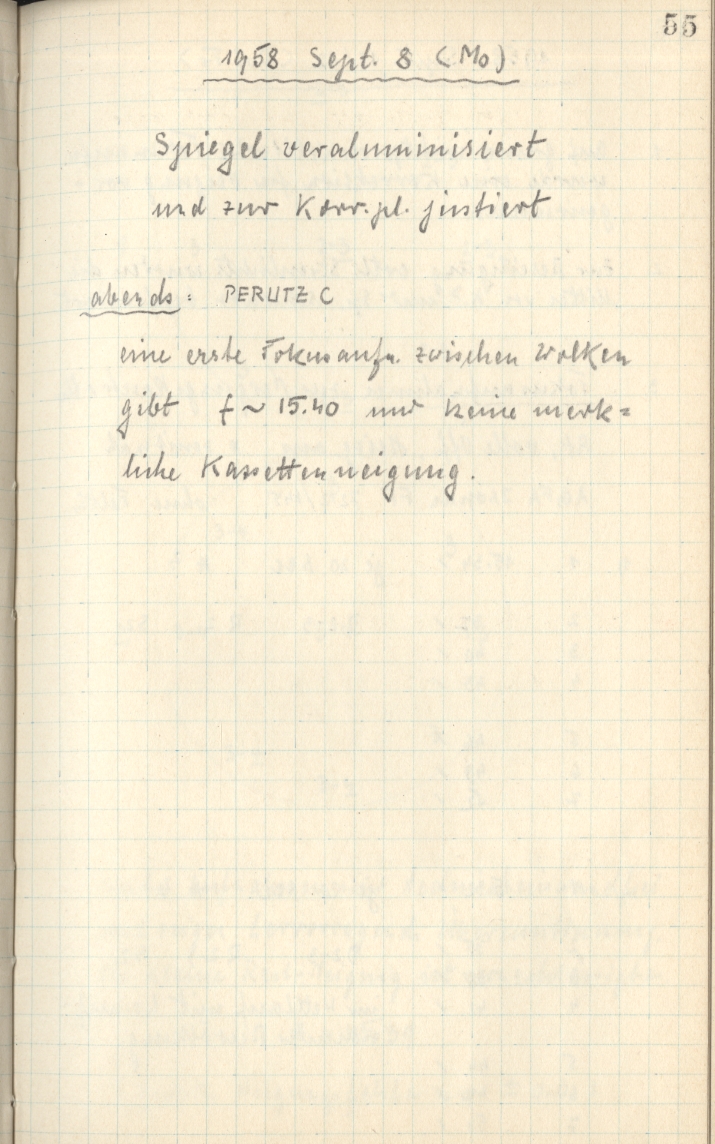 55
1958 Sept. 8 (Mo)
Spiegel veraluminisiert
und zur Korr.pl. justiert
abends: PERUTZ C
eine erste Fokusaufn. zwischen Wolken
gibt f ~ 15.40 und keine merk=
liche Kassettenneigung.